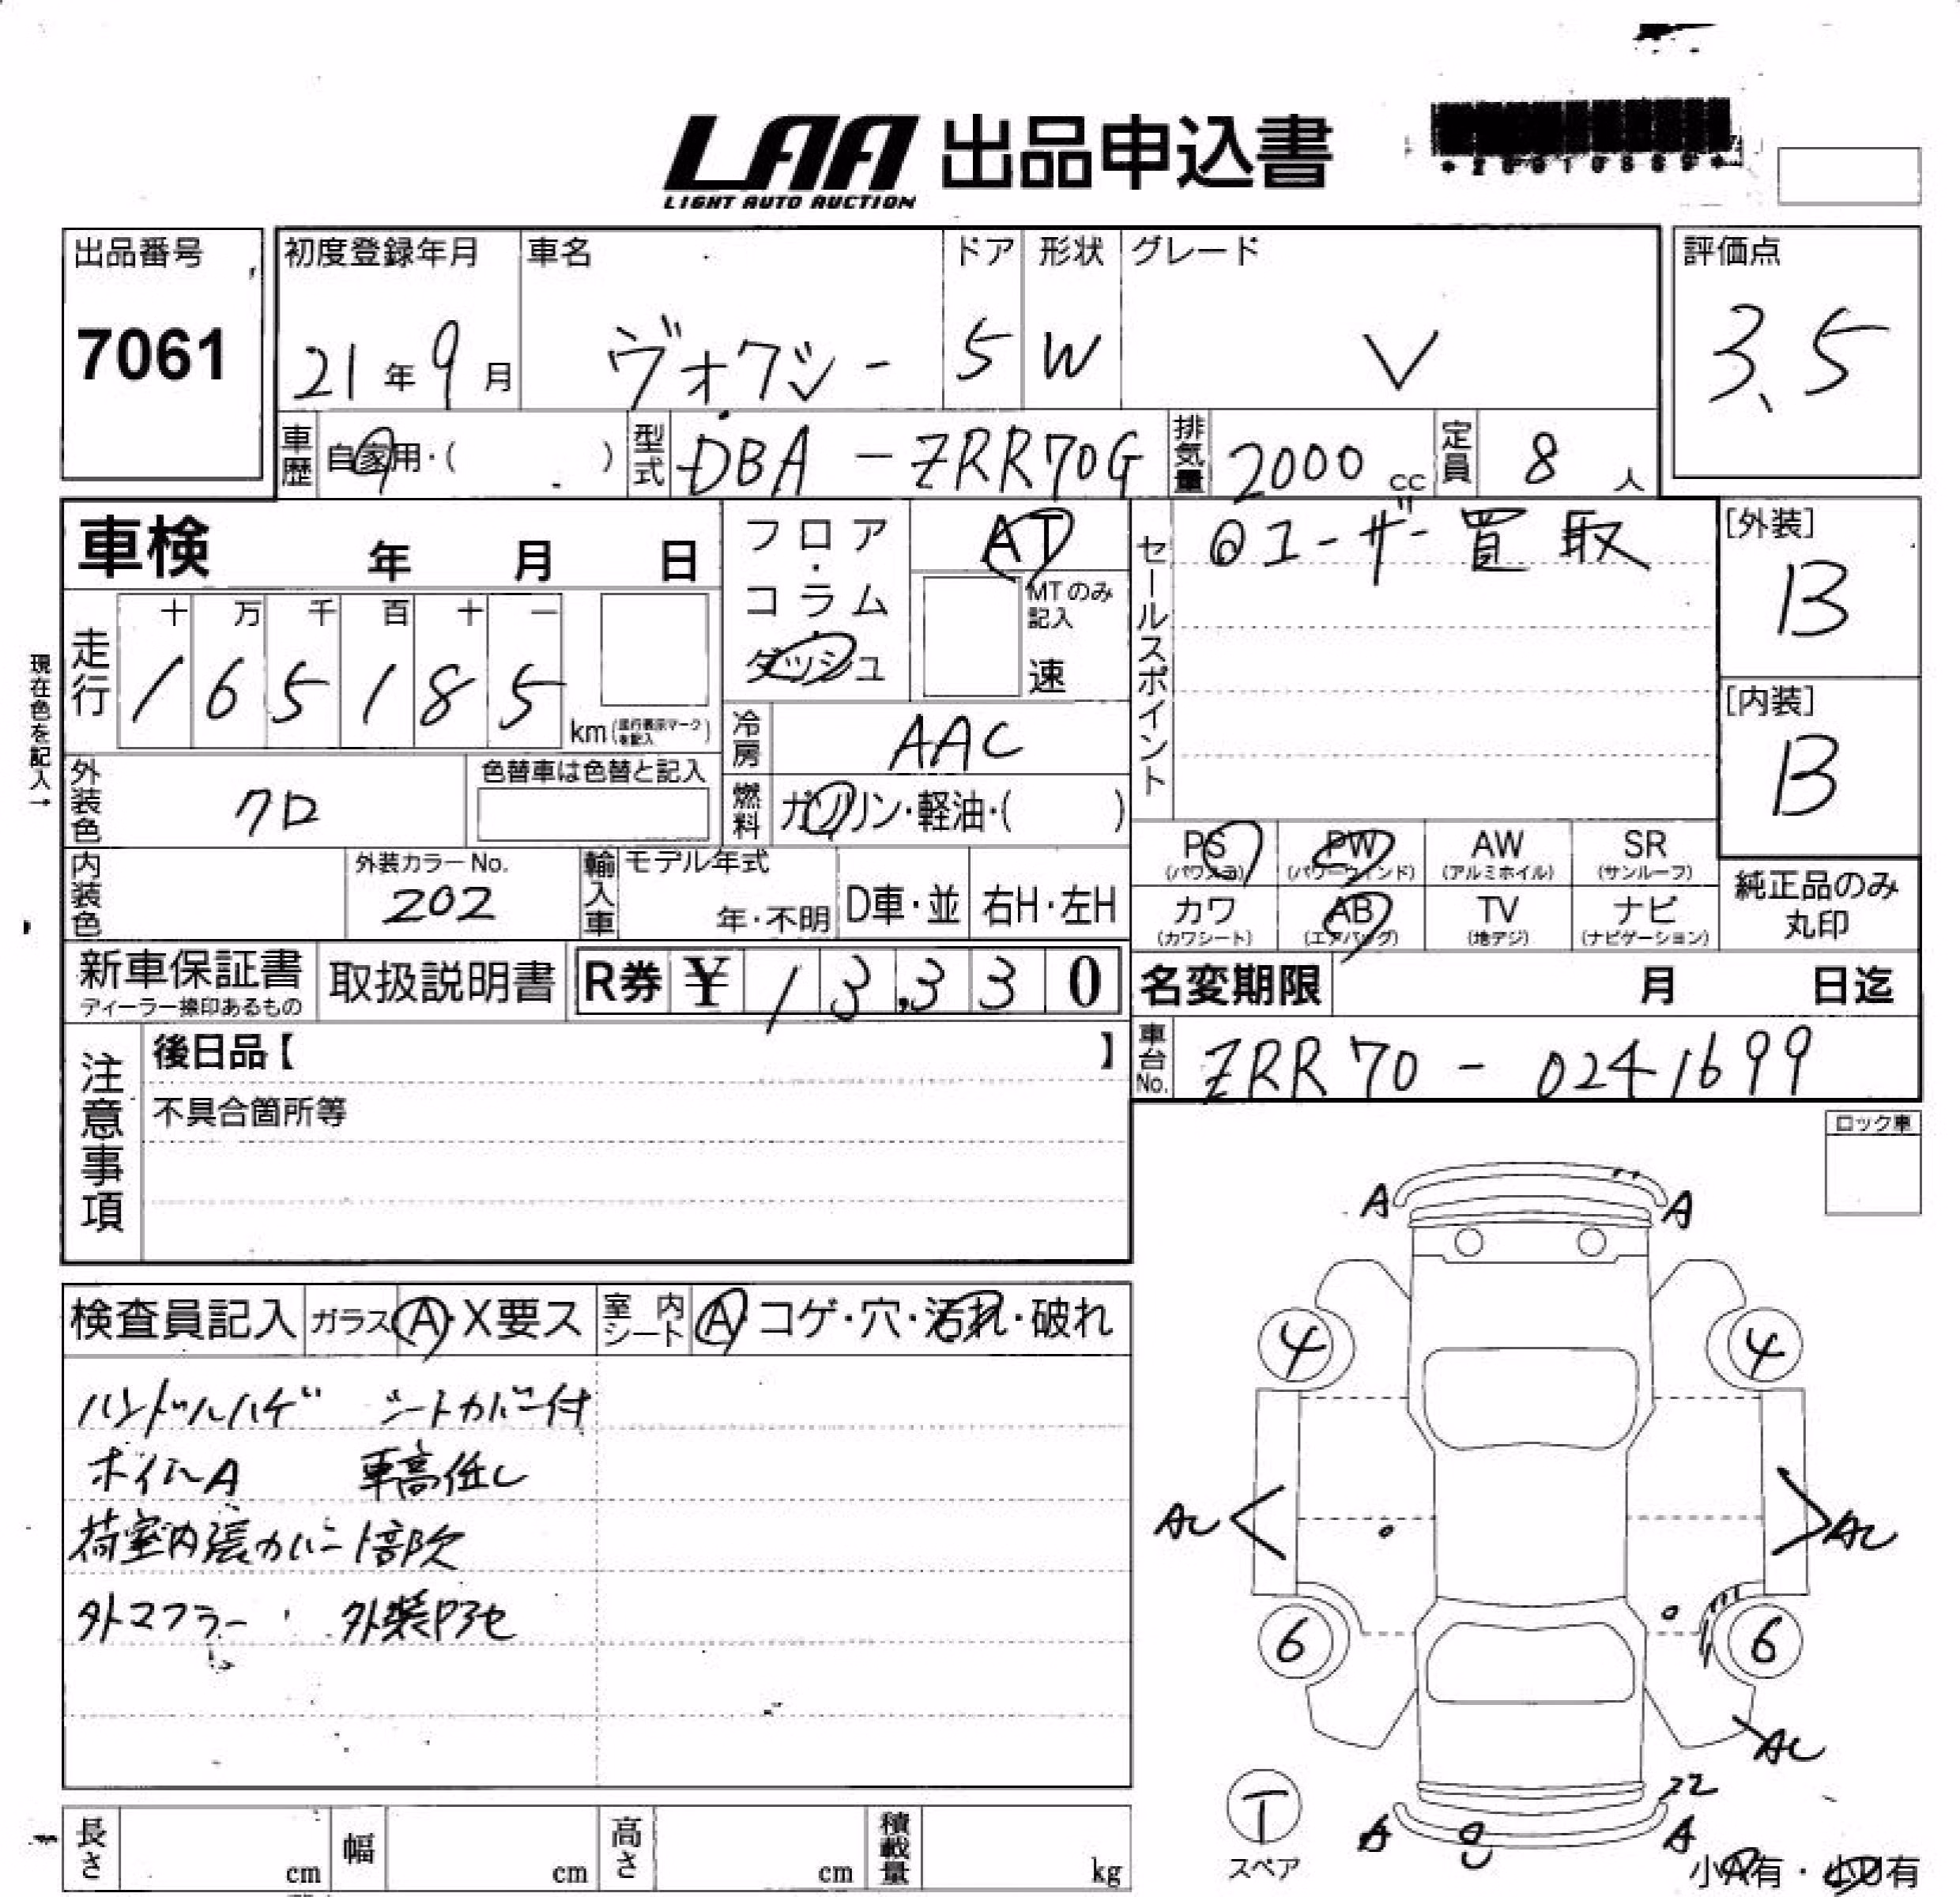 LAA 出品申込書
LIGHT AUTO AUCTION
出品番号
7061
初度登録年月
21年9月
車名
ヴォクシー
ドア
5
形状
W
グレード
V
評価点
3.5
車歴
自家用・( )
型式
DBA-ZRR70G
排気量
2000cc
定員
8人
車検 年 月 日
フロア・コラム・ダッシュ
AT
MTのみ記入
速
セールスポイント
◎ユーザー買取
[外装]
B
[内装]
B
現在色を記入→
走行
十 万 千 百 十 一
1 6 5 1 8 5
km(走行表示マークを記入)
冷房
AAC
燃料
ガソリン・軽油・( )
外装色
クロ
色替車は色替と記入
内装色
外装カラーNo.
202
輸入車
モデル年式
年・不明
D車・並
右H・左H
PS
(パワステ)
PW
(パワーウィンド)
AW
(アルミホイル)
SR
(サンルーフ)
カワ
(カワシート)
AB
(エアバッグ)
TV
(地デジ)
ナビ
(ナビゲーション)
純正品のみ
丸印
新車保証書
ディーラー捺印あるもの
取扱説明書
R券 ¥ 1 3,3 3 0
名変期限 月 日迄
車台No.
ZRR70-0241699
注意事項
後日品【 】
不具合箇所等
ロック車
検査員記入
ガラス
A・X要ス
室内シート
A・コゲ・穴・汚れ・破れ
ハンドルハゲ シートカバー付
ホイールA 車高低し
荷室内張カバー1部欠
外マフラー 外装Pアセ
A A
4 4
AC AC
6 6
AC
A A
T
スペア
小A有・小U有
長さ cm
幅 cm
高さ cm
積載量 kg